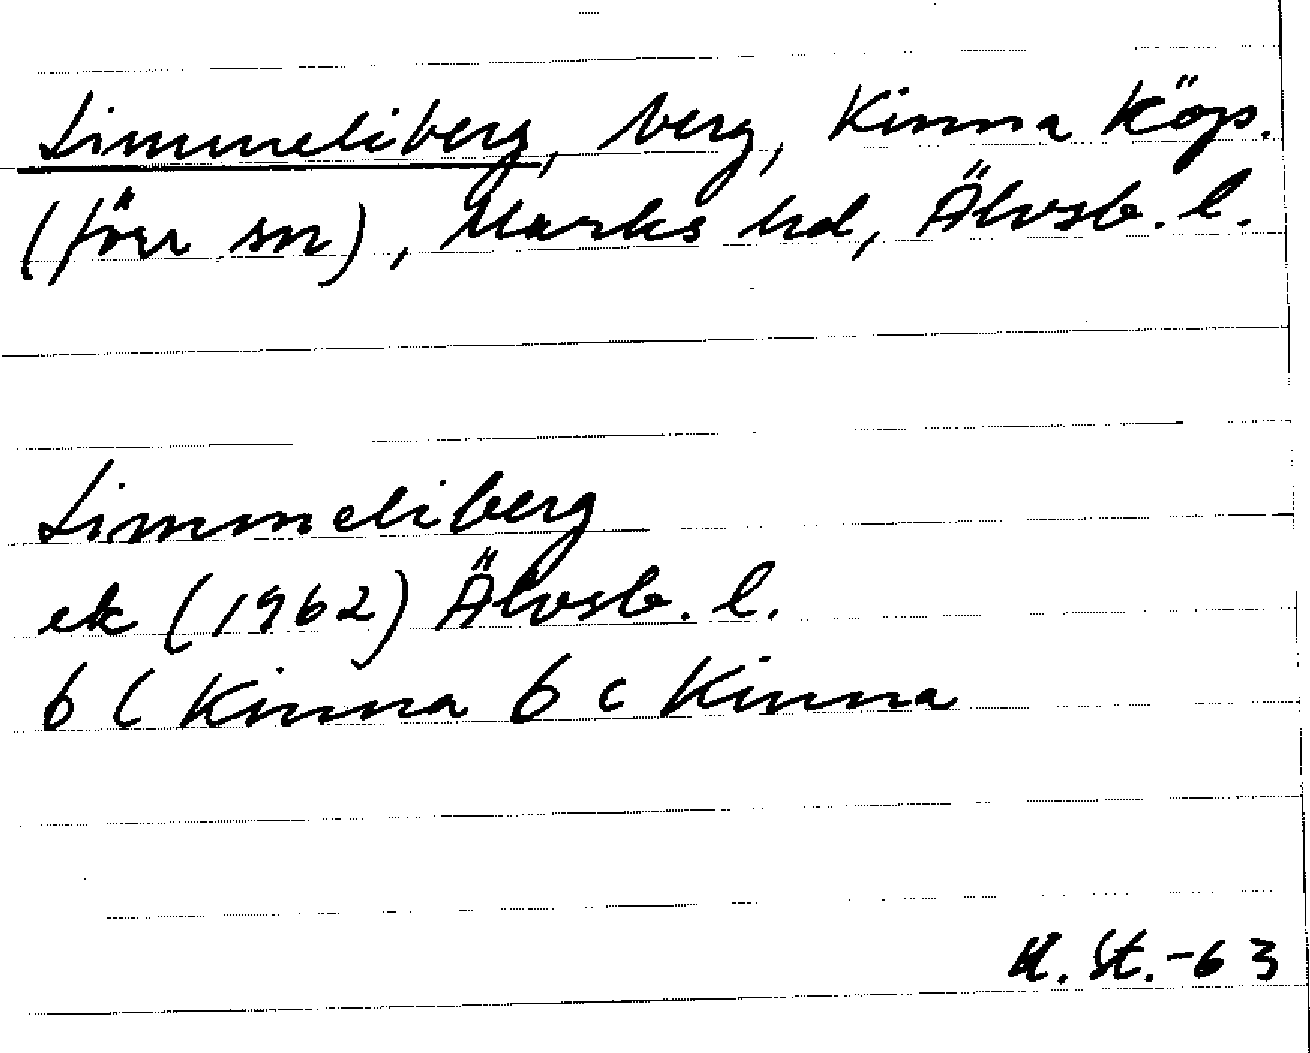 Limmeliberg, berg, Kinna köp.
(förr sn), Marks hd, Älvsb. l.
Limmeliberg
ek (1962) Älvsb. l.
6 C Kinna 6 c Kinna
H. St. -63